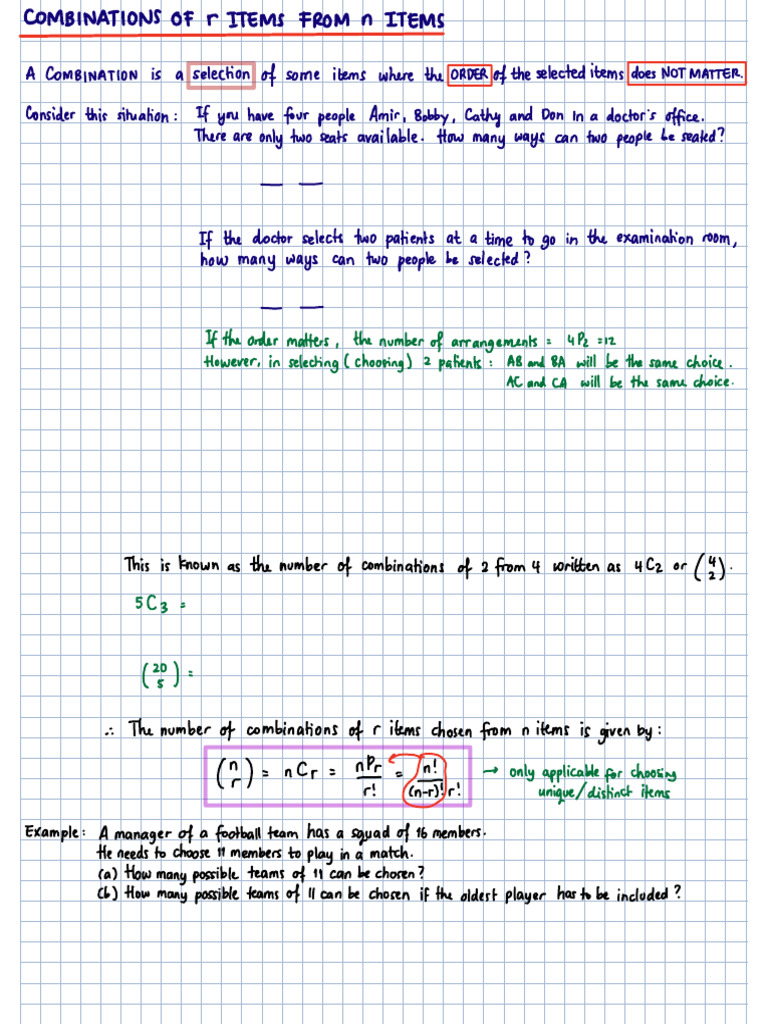 COMBINATIONS OF r ITEMS FROM n ITEMS
A COMBINATION is a selection of some items where the ORDER of the selected items does NOT MATTER.
Consider this situation: If you have four people Amir, Bobby, Cathy and Don in a doctor's office.
There are only two seats available. How many ways can two people be seated?
__ __
If the doctor selects two patients at a time to go in the examination room,
how many ways can two people be selected?
__ __
If the order matters, the number of arrangements = 4P2 = 12
However, in selecting (choosing) 2 patients: AB and BA will be the same choice.
AC and CA will be the same choice.
This is known as the number of combinations of 2 from 4 written as 4C2 or (4 2).
5C3 =
(20 5) =
∴ The number of combinations of r items chosen from n items is given by:
(n r) = nCr = nPr/r! = n!/(n-r)! r! → only applicable for choosing
unique/distinct items
Example: A manager of a football team has a squad of 16 members.
He needs to choose 11 members to play in a match.
(a) How many possible teams of 11 can be chosen?
(b) How many possible teams of 11 can be chosen if the oldest player has to be included?